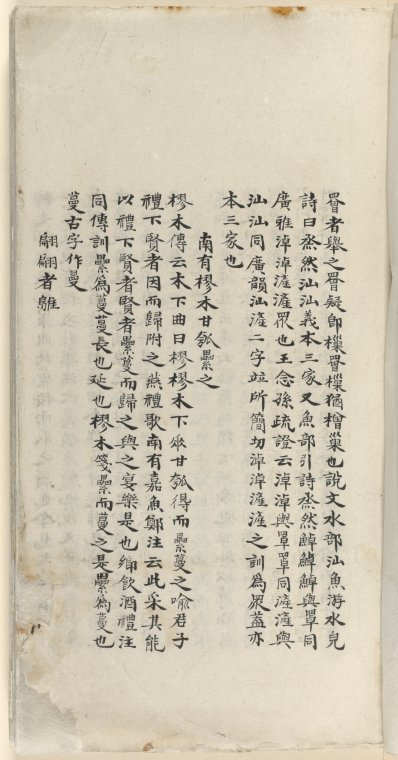 罾者舉之罾疑卽樔罾樔猶橧巢也說文水部汕魚游水皃
詩曰烝然汕汕義本三家又魚部引詩烝然鯙鯙鯙與罩同
廣雅淖淖滻滻眾也王念孫疏證云淖淖與罩罩同滻滻與
汕汕同廣韻汕滻二字竝所簡切淖淖滻滻之訓爲眾蓋亦
本三家也
南有樛木甘瓠纍之
樛木傳云木下曲曰樛樛木下垂甘瓠得而纍蔓之喻君子
禮下賢者因而歸附之燕禮歌南有嘉魚鄭注云此采其能
以禮下賢者賢者纍蔓而歸之與之宴樂是也鄉飲酒禮注
同傳訓纍爲蔓蔓長也延也樛木箋纍而蔓之是纍爲蔓也
蔓古字作曼
翩翩者鵻